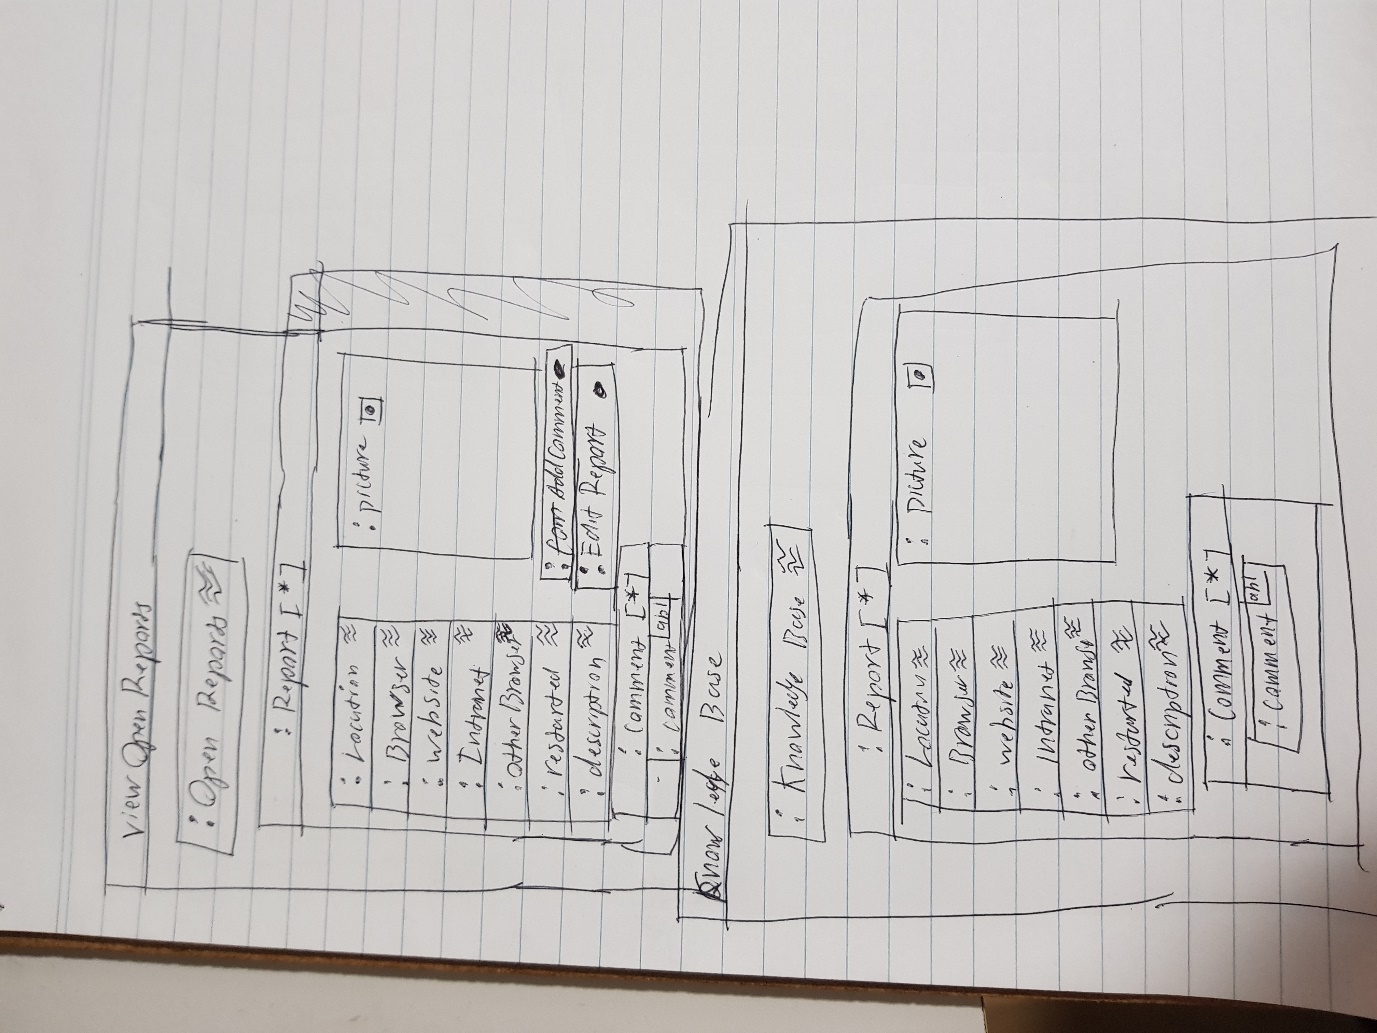 View Open Reports
: Open Reports ≈
: Report [*]
: Location ≈
: Browser ≈
: website ≈
: Intranet ≈
: other Browser ≈
: restarted ≈
: description ≈
: picture
: Add Comment
: Edit Report
: Comment [*]
: comment ab|
Base
: Knowledge Base ≈
: Report [*]
: Location ≈
: Browser ≈
: website ≈
: Intranet ≈
: other Browser ≈
: restarted ≈
: description ≈
: picture
: Comment [*]
: comment ab|